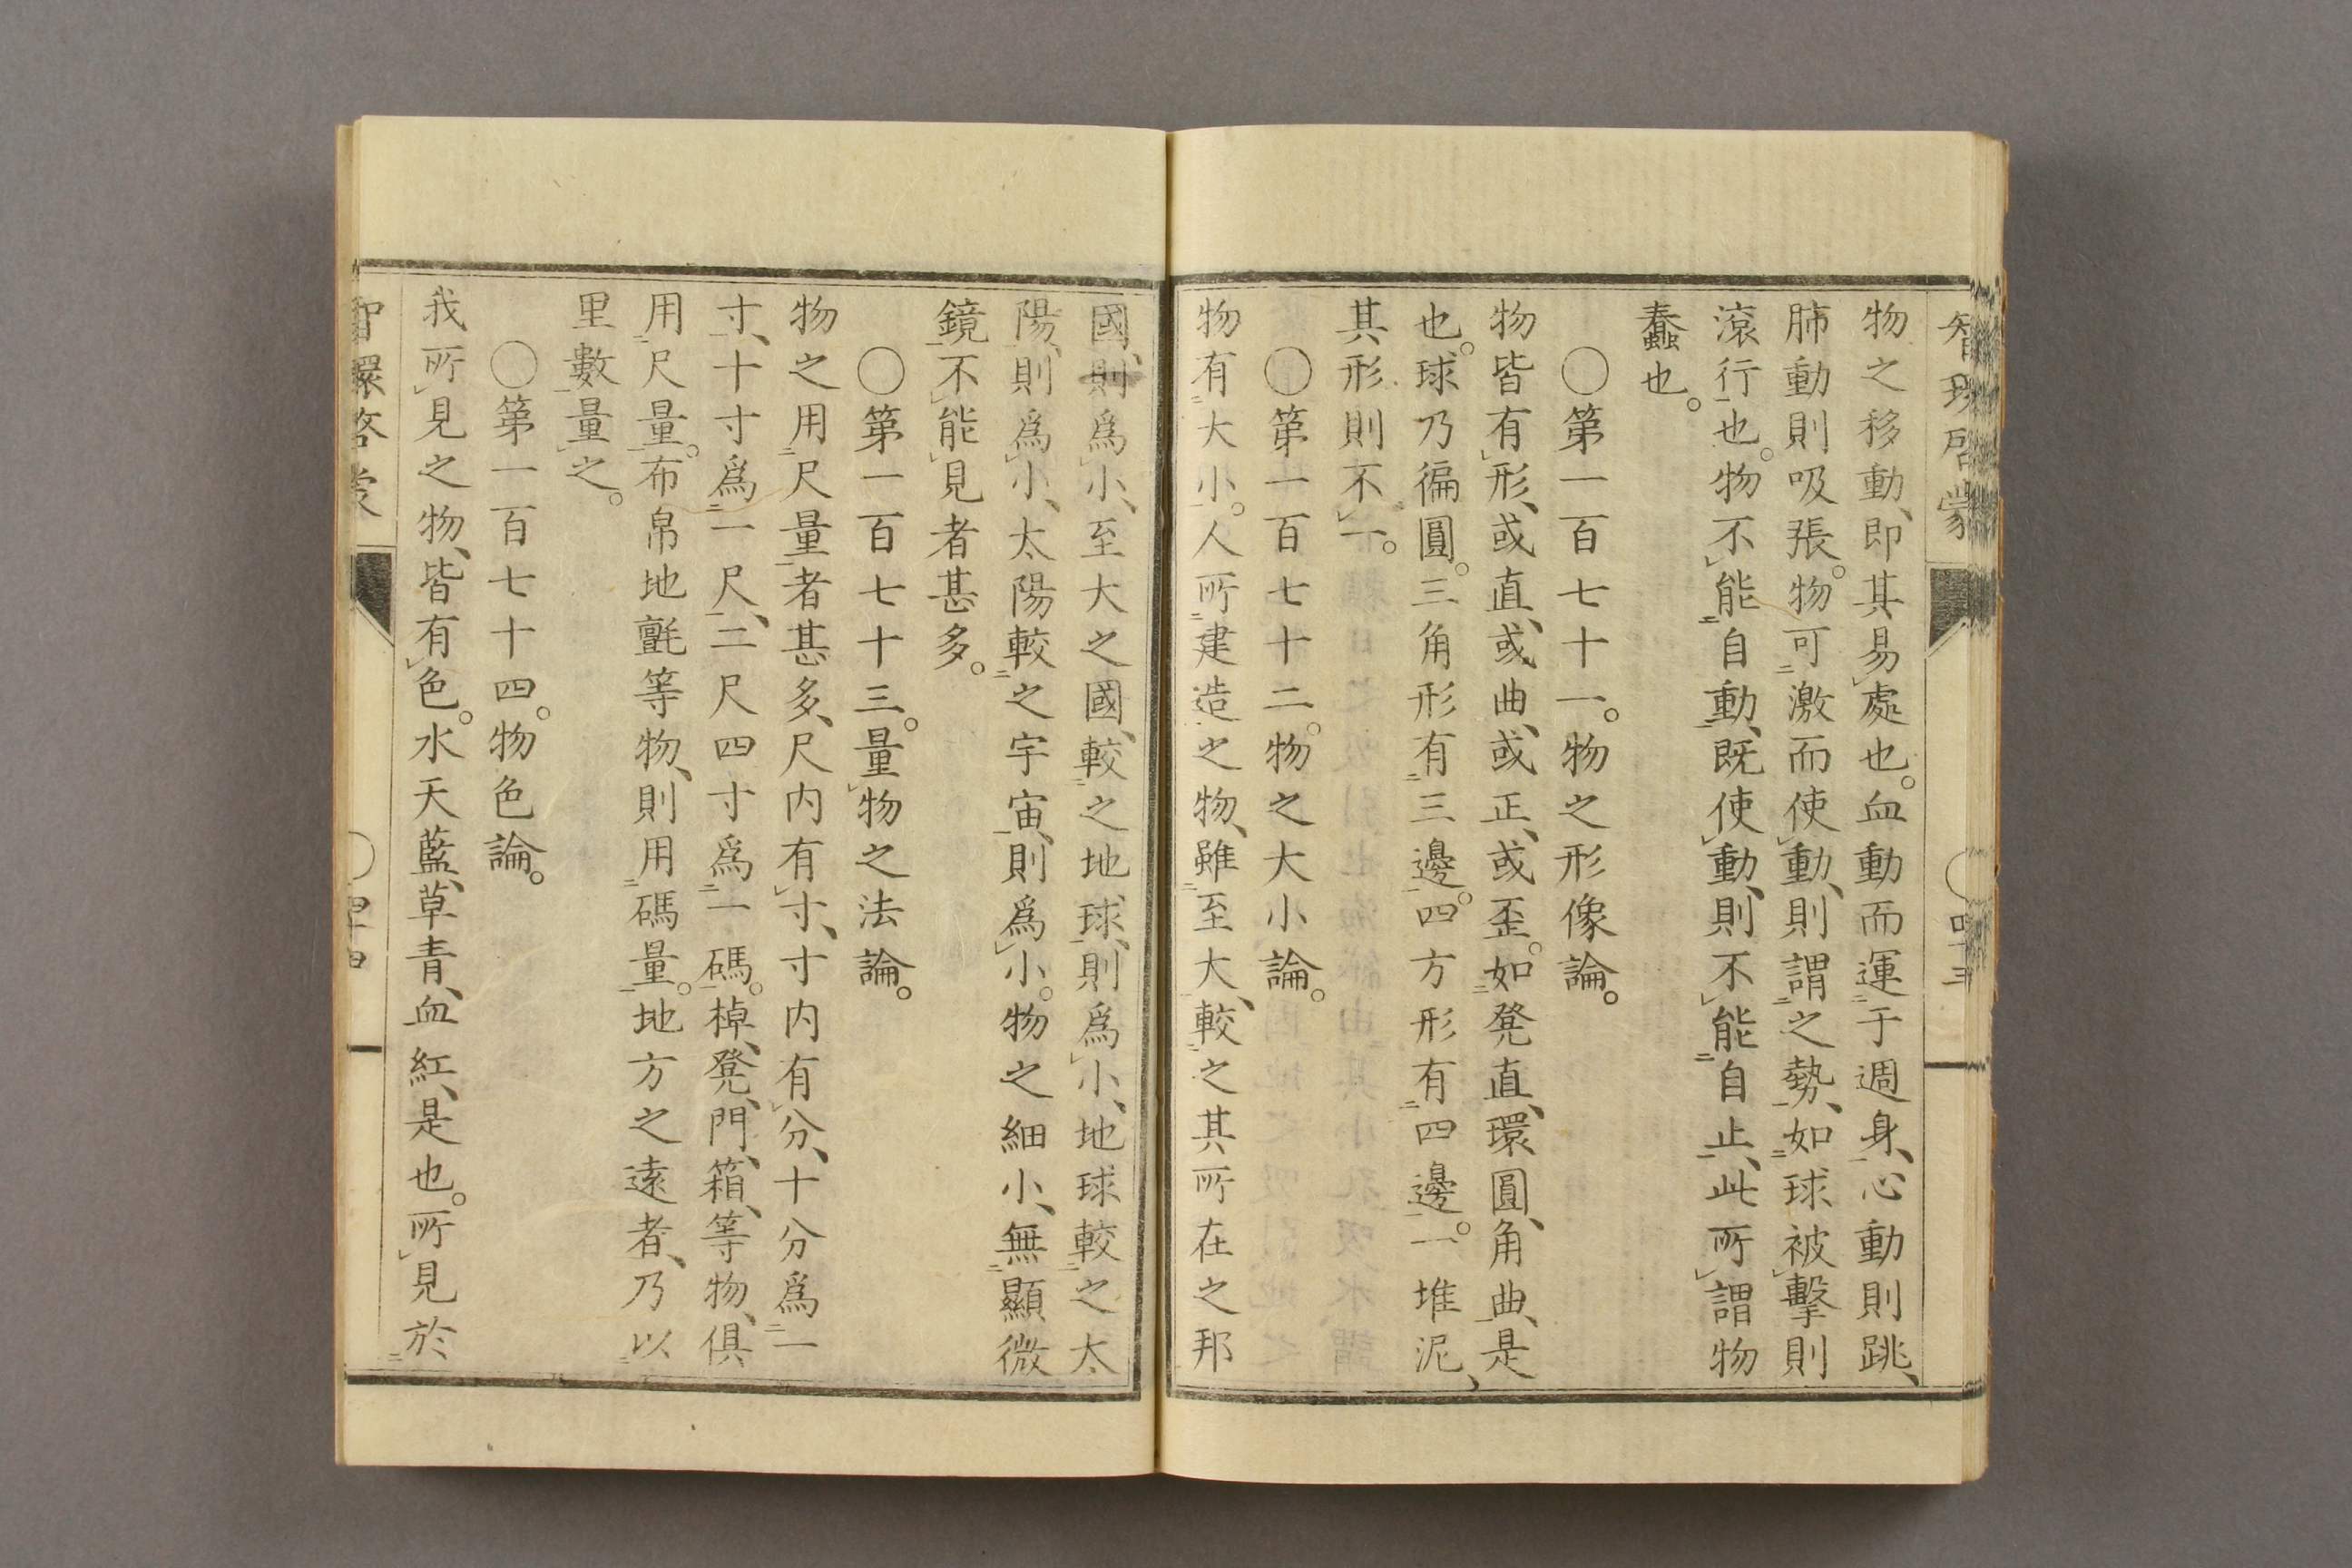 物之移動、即其易處也。血動而運于週身、心動則跳、
肺動則吸張。物可激而使動、則謂之勢、如球被擊則
滾行也。物不能自動、既使動、則不能自止、此所謂物
蠢也。
〇第一百七十一。物之形像論。
物皆有形、或直、或曲、或正、或歪。如凳直、環圓、角曲、是
也。球乃徧圓。三角形有三邊。四方形有四邊。一堆泥、
其形則不一。
〇第一百七十二。物之大小論。
物有大小。人所建造之物、雖至大、較之其所在之邦
國、則爲小、至大之國、較之地球、則爲小、地球較之太
陽、則爲小、太陽較之宇宙、則爲小。物之細小、無顯微
鏡不能見者甚多。
〇第一百七十三。量物之法論。
物之用尺量者甚多、尺内有寸、寸内有分、十分爲一
寸、十寸爲一尺、二尺四寸爲一碼。棹、凳、門、箱、等物、俱
用尺量。布帛地氈等物、則用碼量。地方之遠者、乃以
里數量之。
〇第一百七十四。物色論。
我所見之物、皆有色。水天藍、草青、血紅、是也。所見於